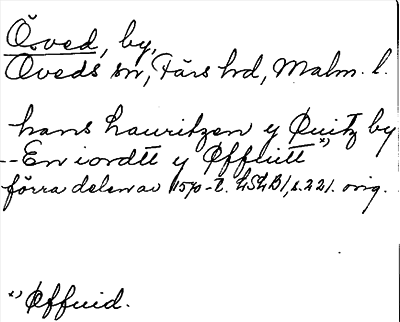 Öved, by,
Öveds sn, Färs hd, Malm. l.
hans Lauritzen y Øuitz by
-- En iordtt y Øffuitt *)
förra delen av 1570-t. LSLB1, s. 221. orig.
*) Øffuid.